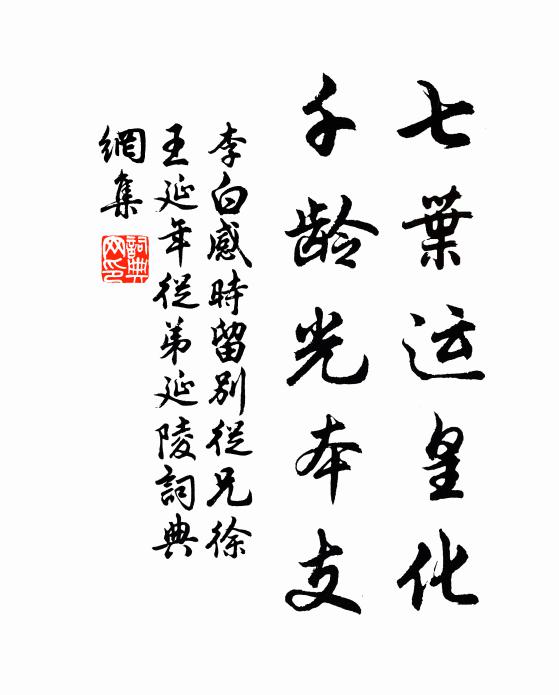 七葉运皇化
千龄光本支
李白感時留别從兄徐
王延年從弟延陵詞典
網集
詞典
网印